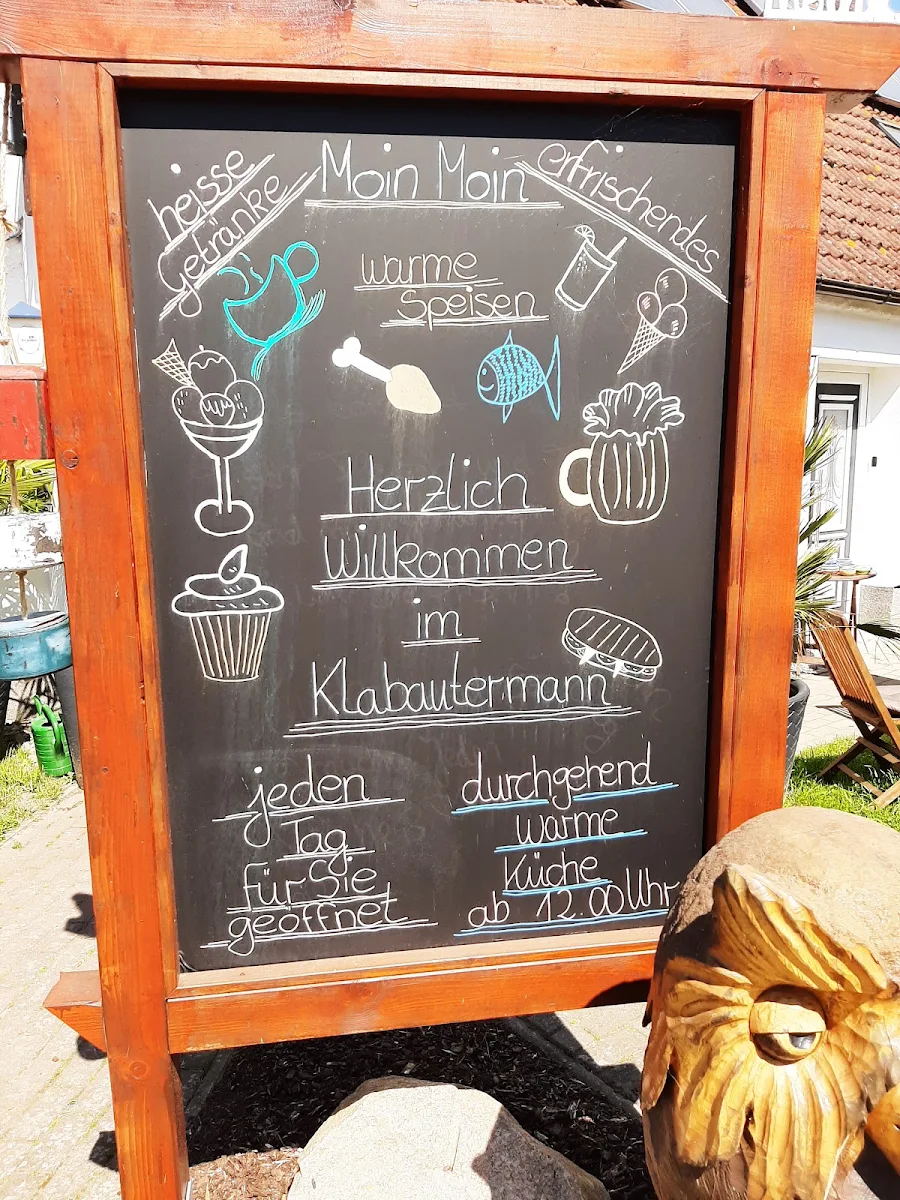 heisse
Getränke
Moin Moin
erfrischendes
warme
Speisen
Herzlich
Willkommen
im
Klabautermann
jeden
Tag
für Sie
geöffnet
durchgehend
warme
Küche
ab 12.00 Uhr